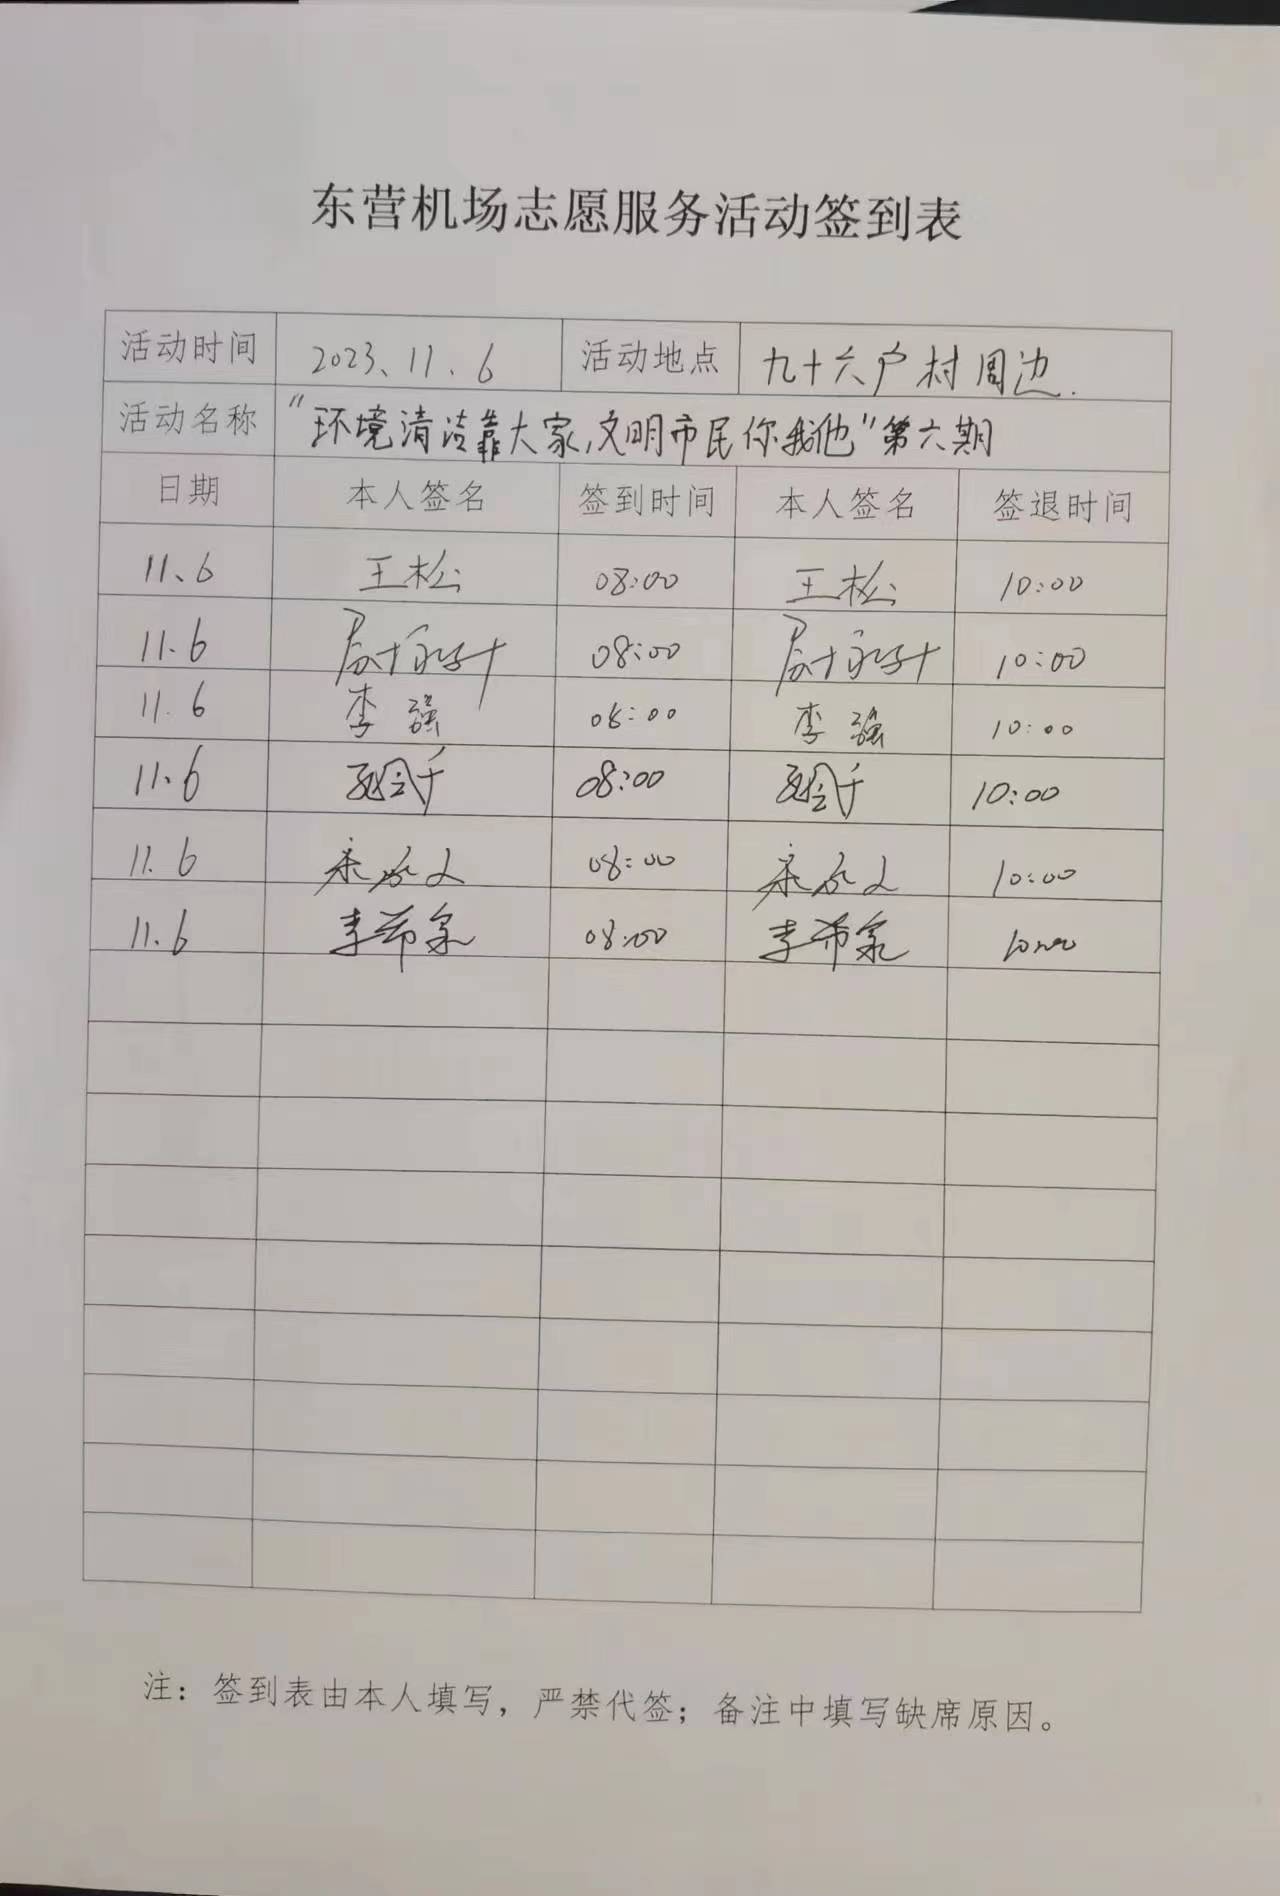 东营机场志愿服务活动签到表
活动时间 2023、11、6 活动地点 九十六户村周边.
活动名称 “环境清洁靠大家,文明市民你我他”第六期
日期 本人签名 签到时间 本人签名 签退时间
11、6 王松 08:00 王松 10:00
11.6 08:00 10:00
11.6 李强 08:00 李强 10:00
11.6 08:00 10:00
11.6 08:00 10:00
11.6 李希泉 08:00 李希泉 10:00
注：签到表由本人填写，严禁代签；备注中填写缺席原因。